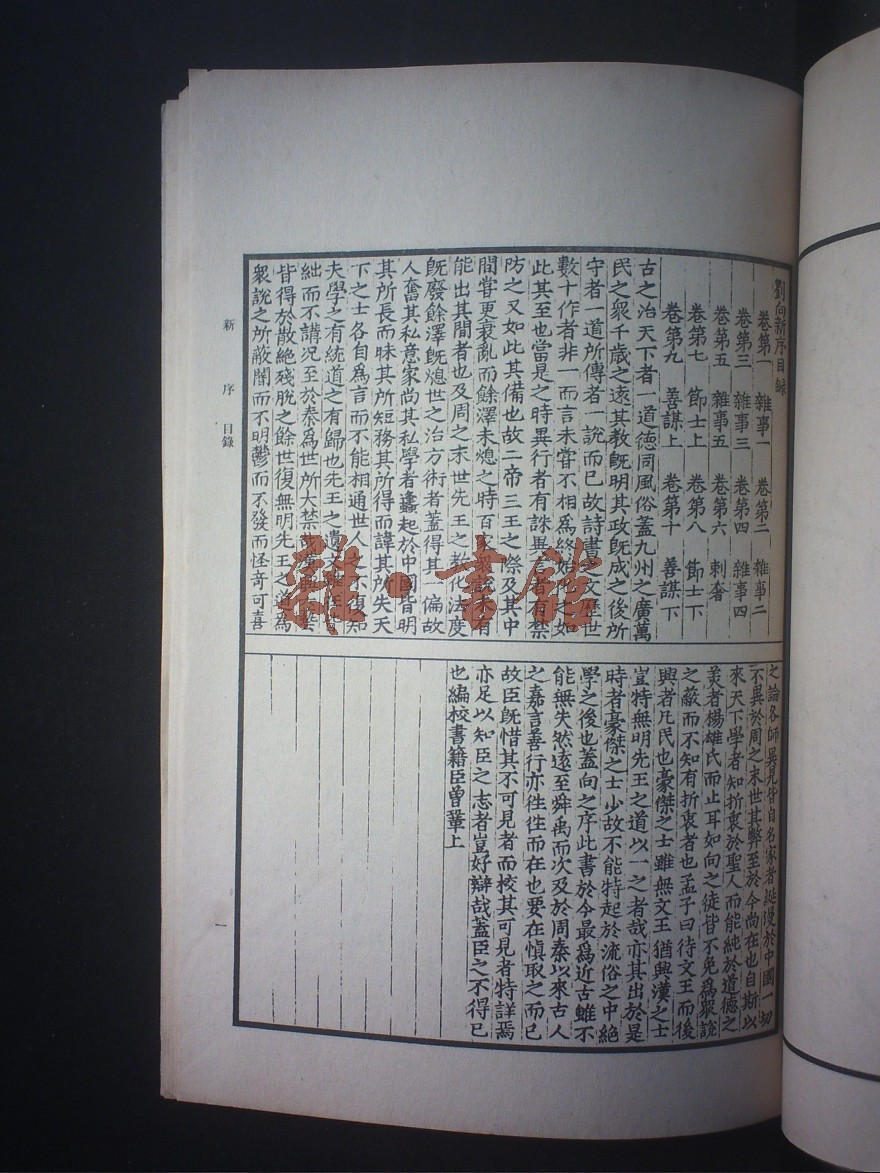 劉向新序目録
卷第一　雜事一　卷第二　雜事二
卷第三　雜事三　卷第四　雜事四
卷第五　雜事五　卷第六　刺奢
卷第七　節士上　卷第八　節士下
卷第九　善謀上　卷第十　善謀下
古之治天下者一道德同風俗蓋九州之廣萬
民之衆千歳之逺其教旣明其政旣成之後所
守者一道所傳者一說而已故詩書之文歴世
數十作者非一而言未嘗不相爲終始化之如
此其至也當是之時異行者有誅異言者有禁
防之又如此其備也故二帝三王之際及其中
間嘗更衰亂而餘澤未熄之時百家衆說未有
能出其間者也及周之末世先王之教化法度
旣廢餘澤旣熄世之治方術者蓋得其一偏故
人奮其私意家尚其私學者蠭起於中國皆明
其所長而昧其所短務其所得而諱其所失天
下之士各自爲言而不能相通世人之不復知
夫學之有統道之有歸也先王之遺文雖在皆
絀而不講況至於秦爲世所大禁哉漢興六藝
皆得於散絶殘脫之餘世復無明先王之道爲
衆說之所蔽闇而不明鬱而不發而怪竒可喜
之論各師異見皆自名家者誕漫於中國一切
不異於周之末世其弊至於今尚在也自斯以
來天下學者知折衷於聖人而能純於道德之
美者楊雄氏而止耳如向之徒皆不免爲衆說
之蔽而不知有折衷者也孟子曰待文王而後
興者凡民也豪傑之士雖無文王猶興漢之士
豈特無明先王之道以一之者哉亦其出於是
時者豪傑之士少故不能特起於流俗之中絶
學之後也蓋向之序此書於今最爲近古雖不
能無失然逺至舜禹而次及於周秦以來古人
之嘉言善行亦徃徃而在也要在愼取之而已
故臣旣惜其不可見者而校其可見者特詳焉
亦足以知臣之志者豈好辯哉蓋臣之不得已
也編校書籍臣曾鞏上
新序　目錄
一
雜·書館